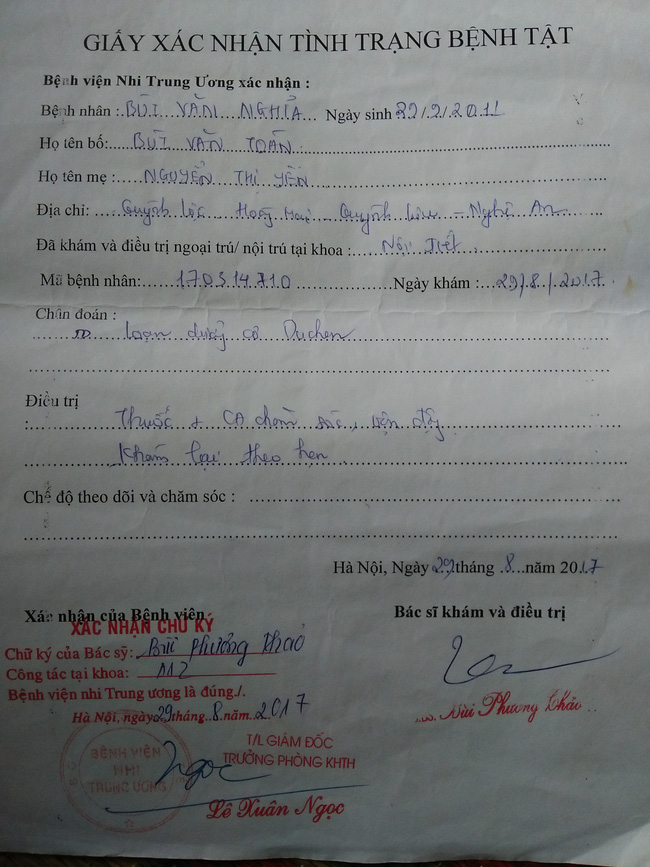 GIẤY XÁC NHẬN TÌNH TRẠNG BỆNH TẬT
Bệnh viện Nhi Trung Ương xác nhận :
Bệnh nhân : BÙI VĂN NGHĨA Ngày sinh 29/9/2011
Họ tên bố: BÙI VĂN TOÁN
Họ tên mẹ : NGUYỄN THỊ YẾN
Địa chỉ: Quỳnh Lộc Hoàng Mai - Quỳnh Lưu - Nghệ An
Đã khám và điều trị ngoại trú/ nội trú tại khoa : Nội Tiết
Mã bệnh nhân: 170314710 Ngày khám : 29/8/2017
Chẩn đoán :
loạn dưỡng cơ Duchen
Điều trị
: Thuốc + CĐ chăm sóc, vận động
Khám lại theo hẹn
Chế độ theo dõi và chăm sóc :
Hà Nội, Ngày 29 tháng 8 năm 2017
Xác nhận của Bệnh viện Bác sĩ khám và điều trị
XÁC NHẬN CHỮ KÝ
Chữ ký của Bác sỹ: Bùi Phương Thảo
Công tác tại khoa: A12
Bệnh viện nhi Trung ương là đúng./.
Hà Nội, ngày 29 tháng 8 năm 2017
Bùi Phương Thảo
T/L GIÁM ĐỐC
TRƯỞNG PHÒNG KHTH
BỆNH VIỆN
NHI
TRUNG ƯƠNG
Ngọc
Lê Xuân Ngọc